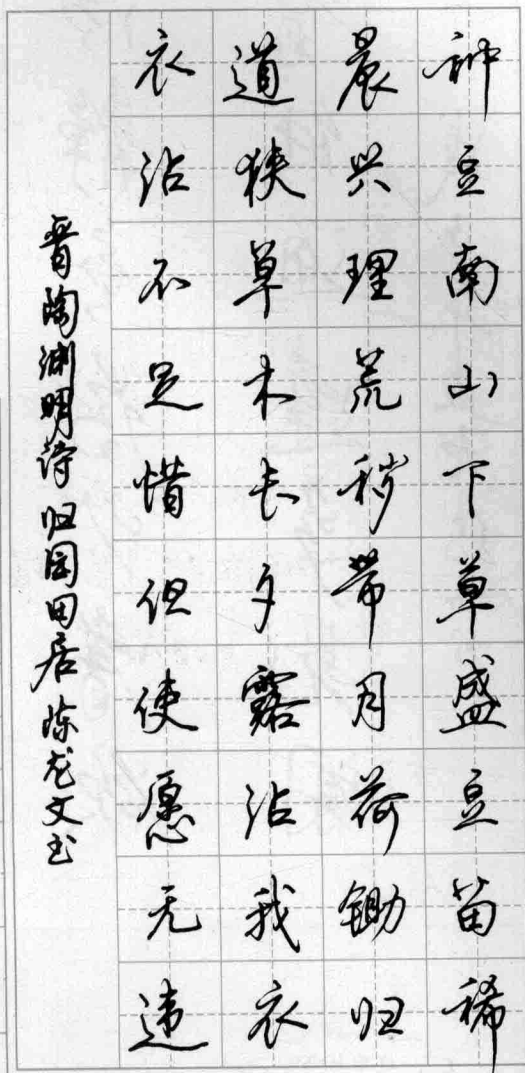 种豆南山下草盛豆苗稀
晨兴理荒秽带月荷锄归
道狭草木长夕露沾我衣
衣沾不足惜但使愿无违
晋陶渊明诗归园田居陈龙文书